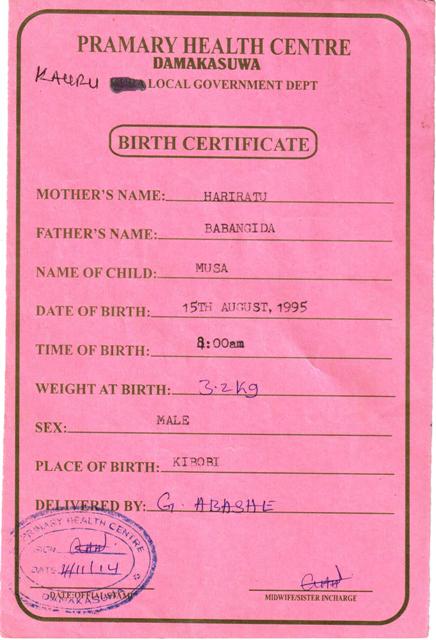 PRAMARY HEALTH CENTRE
DAMAKASUWA
KAURU LOCAL GOVERNMENT DEPT
BIRTH CERTIFICATE
MOTHER'S NAME: HARIRATU
FATHER'S NAME: BABANGIDA
NAME OF CHILD: MUSA
DATE OF BIRTH: 15TH AUGUST, 1995
TIME OF BIRTH: 8:00am
WEIGHT AT BIRTH: 3.2kg
SEX: MALE
PLACE OF BIRTH: KIBOBI
DELIVERED BY: G. ABASHE
PRIMARY HEALTH CENTRE
SIGN
DATE 4/11/14
DAMAKASUWA
DATE/OFFIAL STAMP
MIDWIFE/SISTER INCHARGE